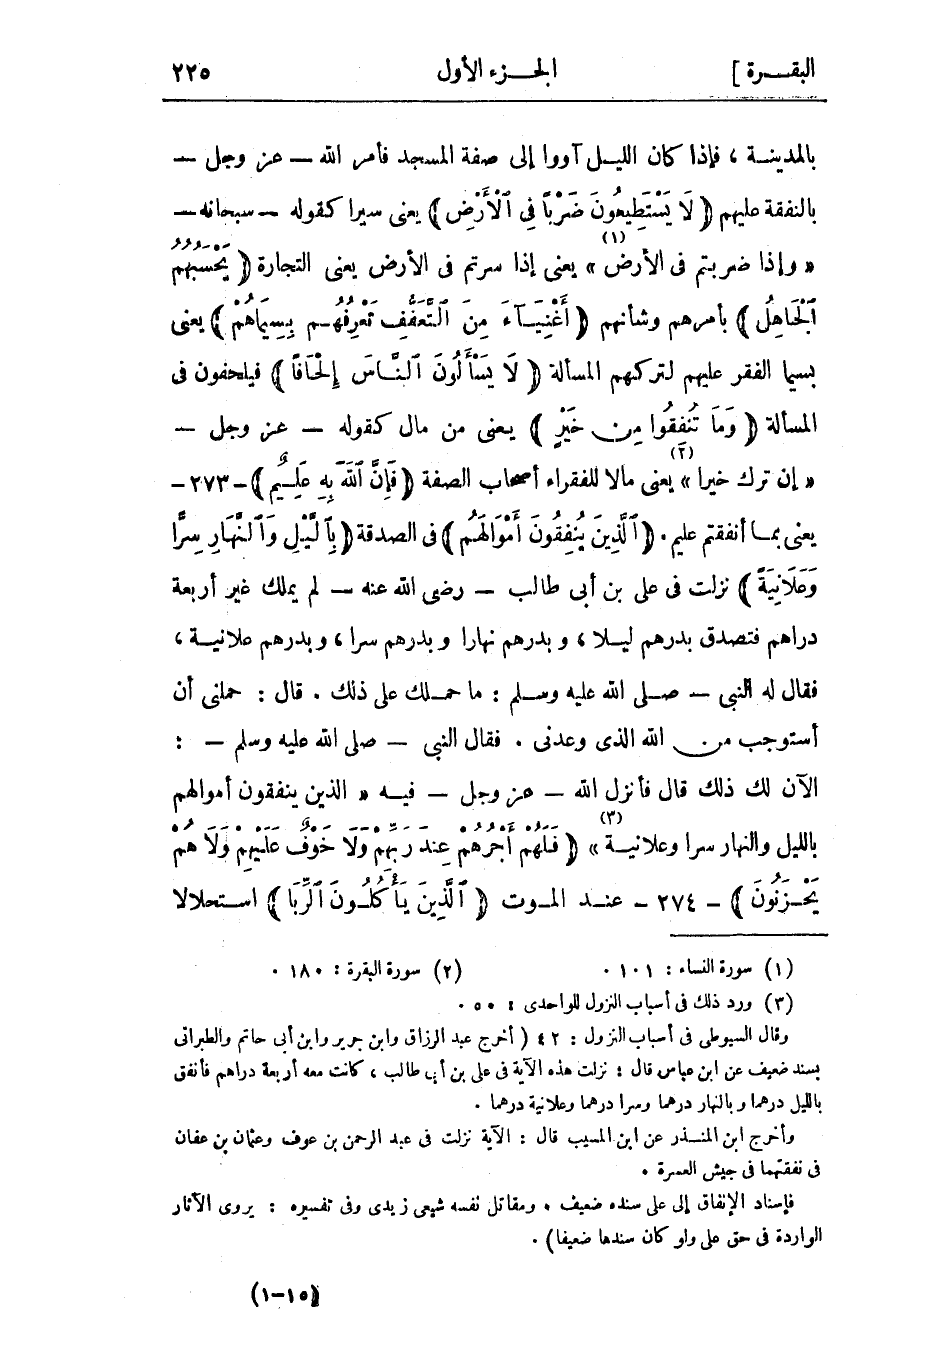 البقـــرة ]
الجـــزء الأول
٢٢٥
بالمدينــة ، فإذا كان الليــل آووا إلى صفة المسجد فأمر الله — عز وجل —
بالنفقة عليهم ﴿ لَا يَسْتَطِيعُونَ ضَرْبًا فِي ٱلْأَرْضِ ﴾ يعنى سيرا كقوله — سبحانه —
« وإذا ضربتم فى الأرض (١) » يعنى إذا سرتم فى الأرض يعنى التجارة ﴿ يَحْسَبُهُمُ
ٱلْجَاهِلُ ﴾ بأمرهم وشأنهم ﴿ أَغْنِيَآءَ مِنَ ٱلتَّعَفُّفِ تَعْرِفُهُم بِسِيمَاهُمْ ﴾ يعنى
بسيما الفقر عليهم لتركهم المسألة ﴿ لَا يَسْأَلُونَ ٱلنَّاسَ إِلْحَافًا ﴾ فيلحفون فى
المسألة ﴿ وَمَا تُنفِقُوا مِن خَيْرٍ ﴾ يعنى من مال كقوله — عز وجل —
« إن ترك خيرا (٢) » يعنى مالا للفقراء أصحاب الصفة ﴿ فَإِنَّ ٱللَّهَ بِهِ عَلِيمٌ ﴾ - ٢٧٣ -
يعنى بمــا أنفقتم عليم . ﴿ ٱلَّذِينَ يُنفِقُونَ أَمْوَالَهُم ﴾ فى الصدقة ﴿ بِٱلَّيْلِ وَٱلنَّهَارِ سِرًّا
وَعَلَانِيَةً ﴾ نزلت فى على بن أبى طالب — رضى الله عنه — لم يملك غير أربعة
دراهم فتصدق بدرهم ليــلا ، وبدرهم نهارا وبدرهم سرا ، وبدرهم علانيــة ،
فقال له النبى — صــلى الله عليه وســلم : ما حمــلك على ذلك . قال : حملنى أن
أستوجب من الله الذى وعدنى . فقال النبى — صلى الله عليه وسلم — :
الآن لك ذلك قال فأنزل الله — عز وجل — فيــه « الذين ينفقون أموالهم
بالليل والنهار سرا وعلانيــة (٣) » ﴿ فَلَهُمْ أَجْرُهُمْ عِندَ رَبِّهِمْ وَلَا خَوْفٌ عَلَيْهِمْ وَلَا هُمْ
يَحْــزَنُونَ ﴾ - ٢٧٤ - عنــد المــوت ﴿ ٱلَّذِينَ يَأْكُلُــونَ ٱلرِّبَا ﴾ اســتحلالا
(١) سورة النساء : ١٠١ .
(٢) سورة البقرة : ١٨٠ .
(٣) ورد ذلك فى أسباب النزول للواحدى : ٥٠ .
وقال السيوطى فى أسباب النزول : ٤٢ ( أخرج عبد الرزاق وابن جرير وابن أبى حاتم والطبرانى
بسند ضعيف عن ابن عباس قال : نزلت هذه الآية فى على بن أبى طالب ، كانت معه أربعة دراهم فأنفق
بالليل درهما وبالنهار درهما وسرا درهما وعلانية درهما .
وأخرج ابن المنــذر عن ابن المسيب قال : الآية نزلت فى عبد الرحمن بن عوف وعثمان بن عفان
فى نفقتهما فى جيش العسرة .
فإسناد الإنفاق إلى على سنده ضعيف . ومقاتل نفسه شيعى زيدى وفى تفسيره : يروى الآثار
الواردة فى حق على ولو كان سندها ضعيفا) .
(١٥-١)